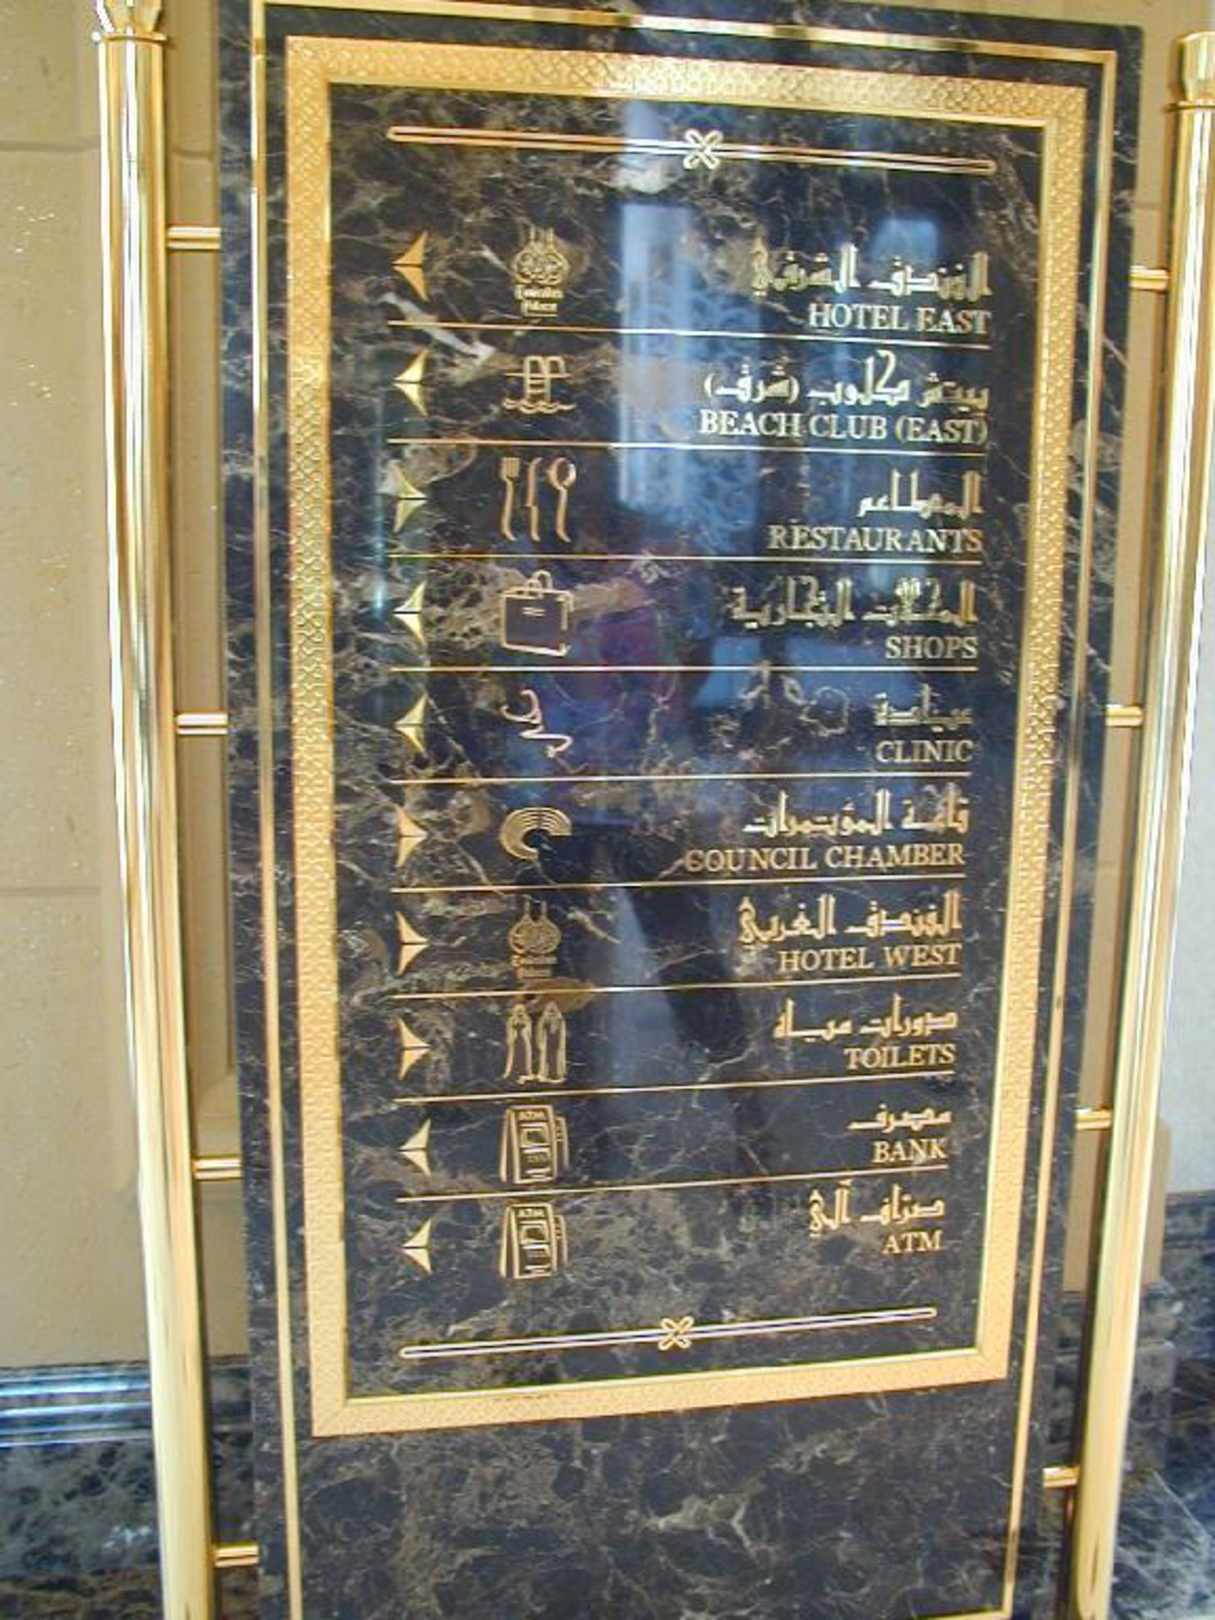 Emirates
Palace
الفندق الشرقي
HOTEL EAST
بيتش كلوب (شرق)
BEACH CLUB (EAST)
المطاعم
RESTAURANTS
المحلات التجارية
SHOPS
عيادة
CLINIC
قاعة المؤتمرات
COUNCIL CHAMBER
Emirates
Palace
الفندق الغربي
HOTEL WEST
دورات مياه
TOILETS
ATM
مصرف
BANK
ATM
صرّاف آلي
ATM